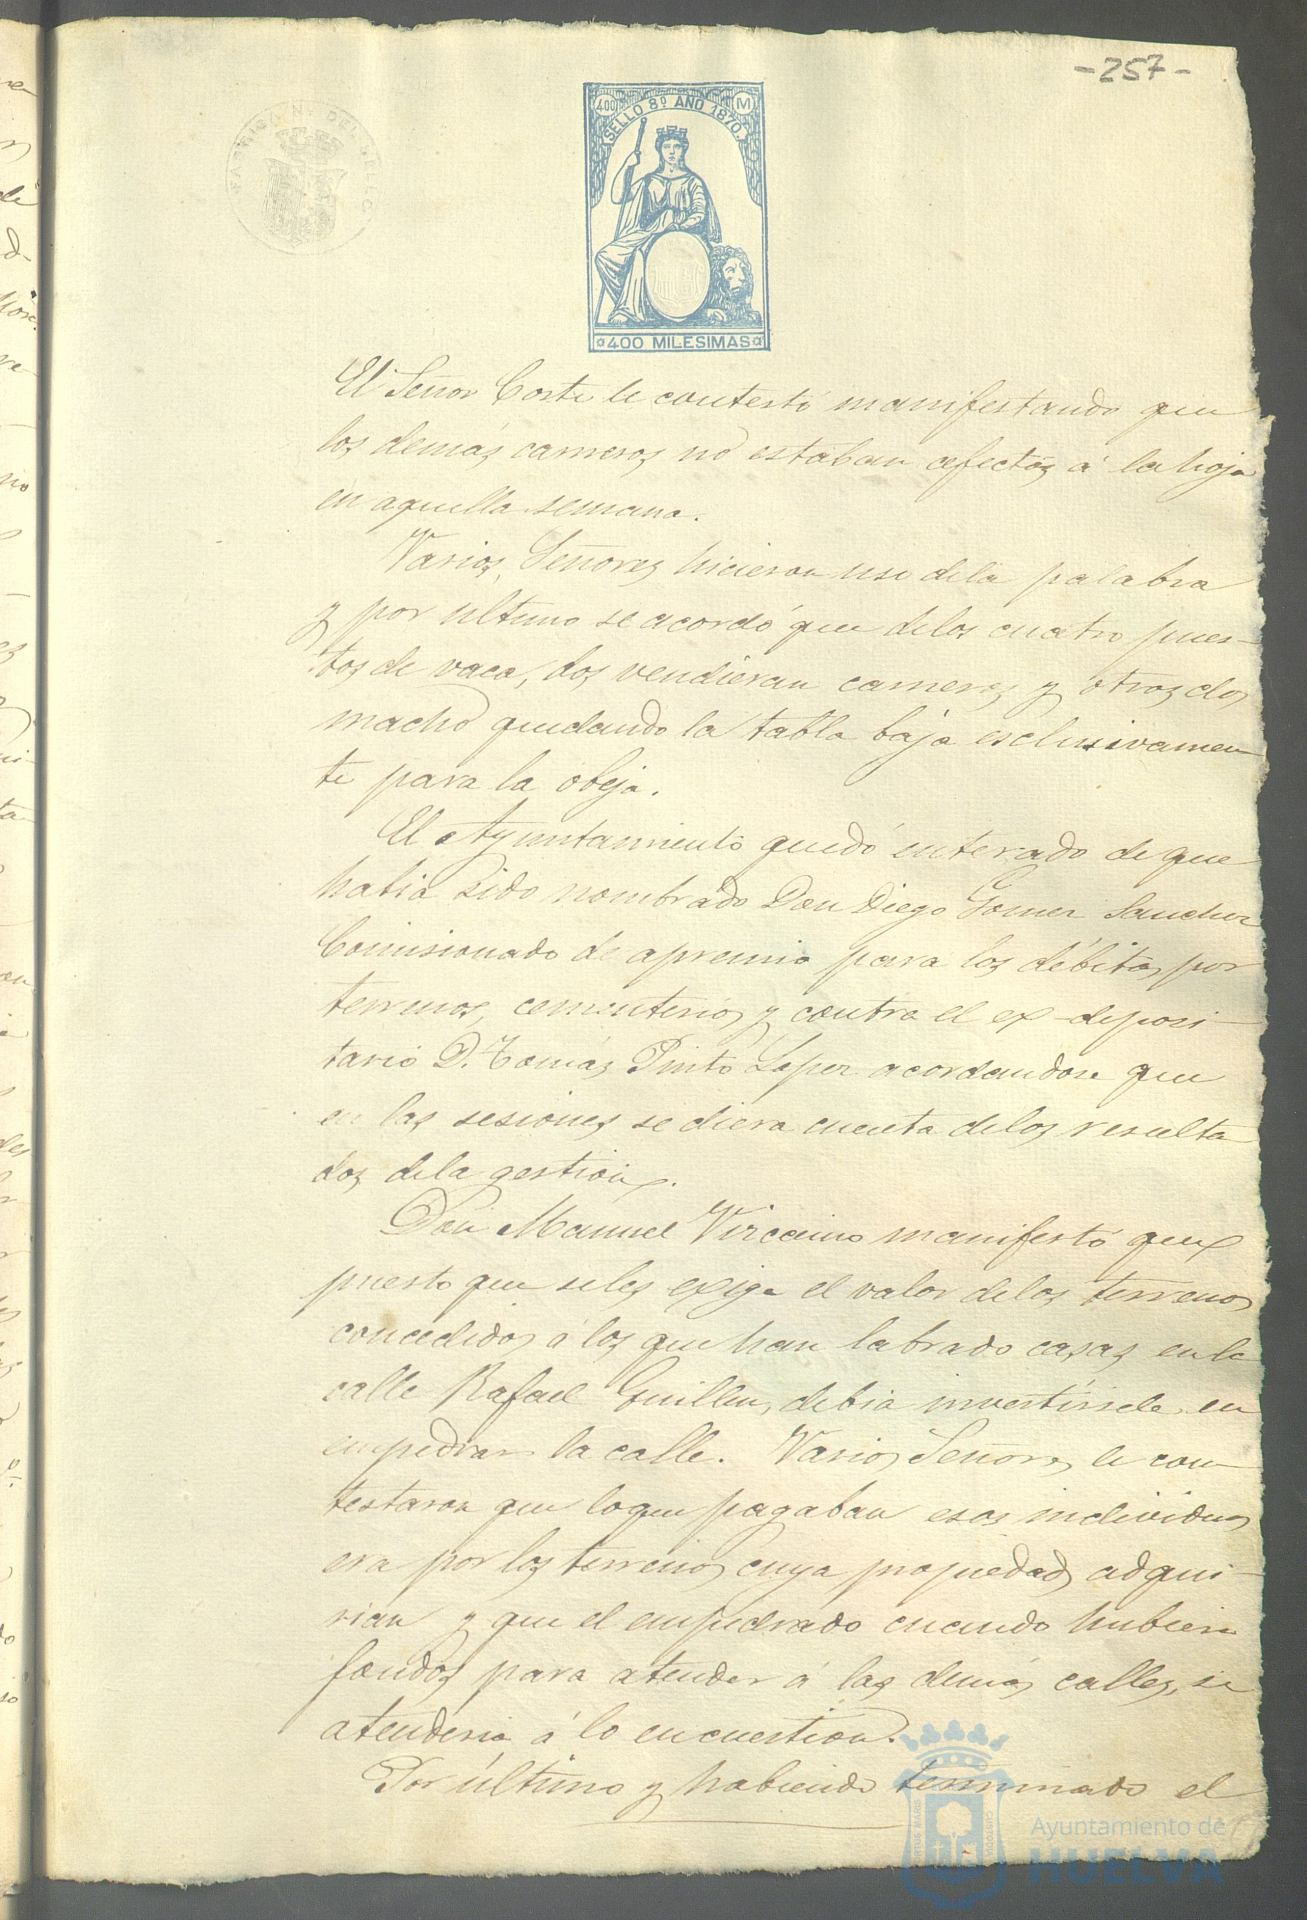 -257-
FABRICA Nˡ DEL SELLO
400 SELLO 8º AÑO 1870. M
400 MILESIMAS
El Señor Corte le contestó manifestando que
los demás carneros no estaban afectos á la hoja
en aquella semana.
Varios Señores hicieron uso de la palabra
y por ultimo se acordó que de los cuatro pues-
tos de vaca, dos vendieran carneros y otros dos
macho quedando la tabla baja esclusivamen
te para la obeja.
El Ayuntamiento quedó enterado de que
habia sido nombrado Don Diego Gomez Sanchez
Comisionado de apremio para los débitos por
terrenos, cementerios y contra el ex-deposi-
tario D. Tomás Pinto Lopez acordandose que
en las sesiones se diera cuenta de los resulta
dos de la gestion.
Don Manuel Vizcaino manifestó que
puesto que se les exige el valor de los terrenos
concedidos á los que han labrado casas en la
calle Rafael Guillen, debia invertirsele en
empedrar la calle. Varios Señores le con-
testaron que lo que pagaban esos individuos
era por los terrenos cuya propiedad adqui-
rian y que el empedrado cuando hubiera
fondos para atender á las demás calles, se
atenderia á lo en cuestion.
Por último y habiendo terminado el
Ayuntamiento de
HUELVA